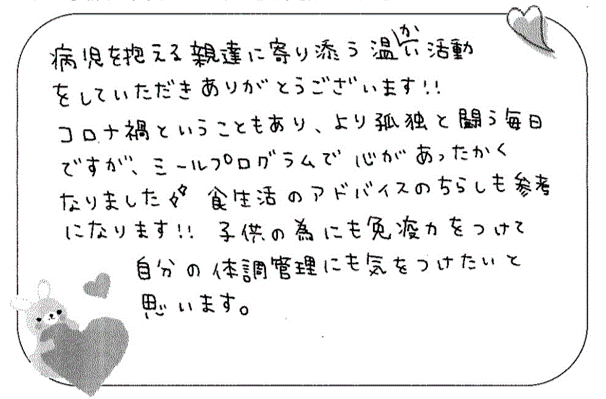 病児を抱える親達に寄り添う温かい活動
をしていただきありがとうございます!!
コロナ禍ということもあり、より孤独と闘う毎日
ですが、ミールプログラムで心があったかく
なりました 食生活のアドバイスのちらしも参考
になります!! 子供の為にも免疫力をつけて
自分の体調管理にも気をつけたいと
思います。